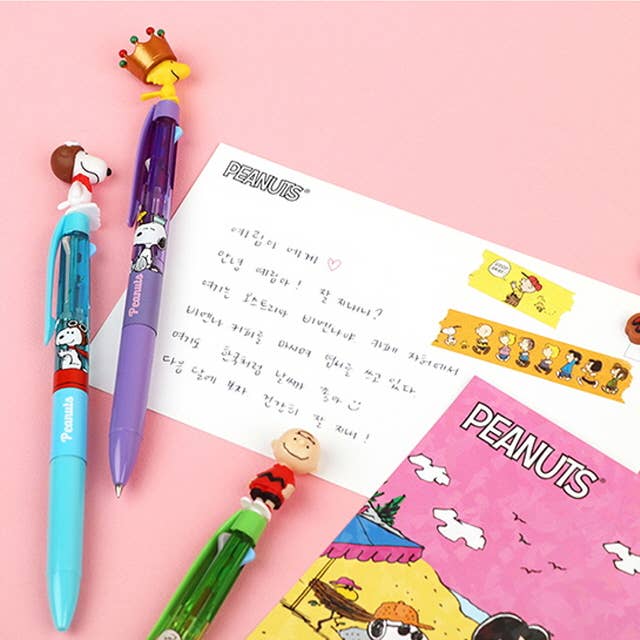 PEANUTS®
예림이 에게 ♡
안녕 예림아! 잘 지내니?
여기는 오스트리아 비엔나야 카페 자허에서
비엔나 커피를 마시며 엽서를 쓰고 있다
여기도 한국처럼 날씨가 좋아
다음 달에 보자 건강히 잘 지내!
Peanuts
Peanuts
PEANUTS